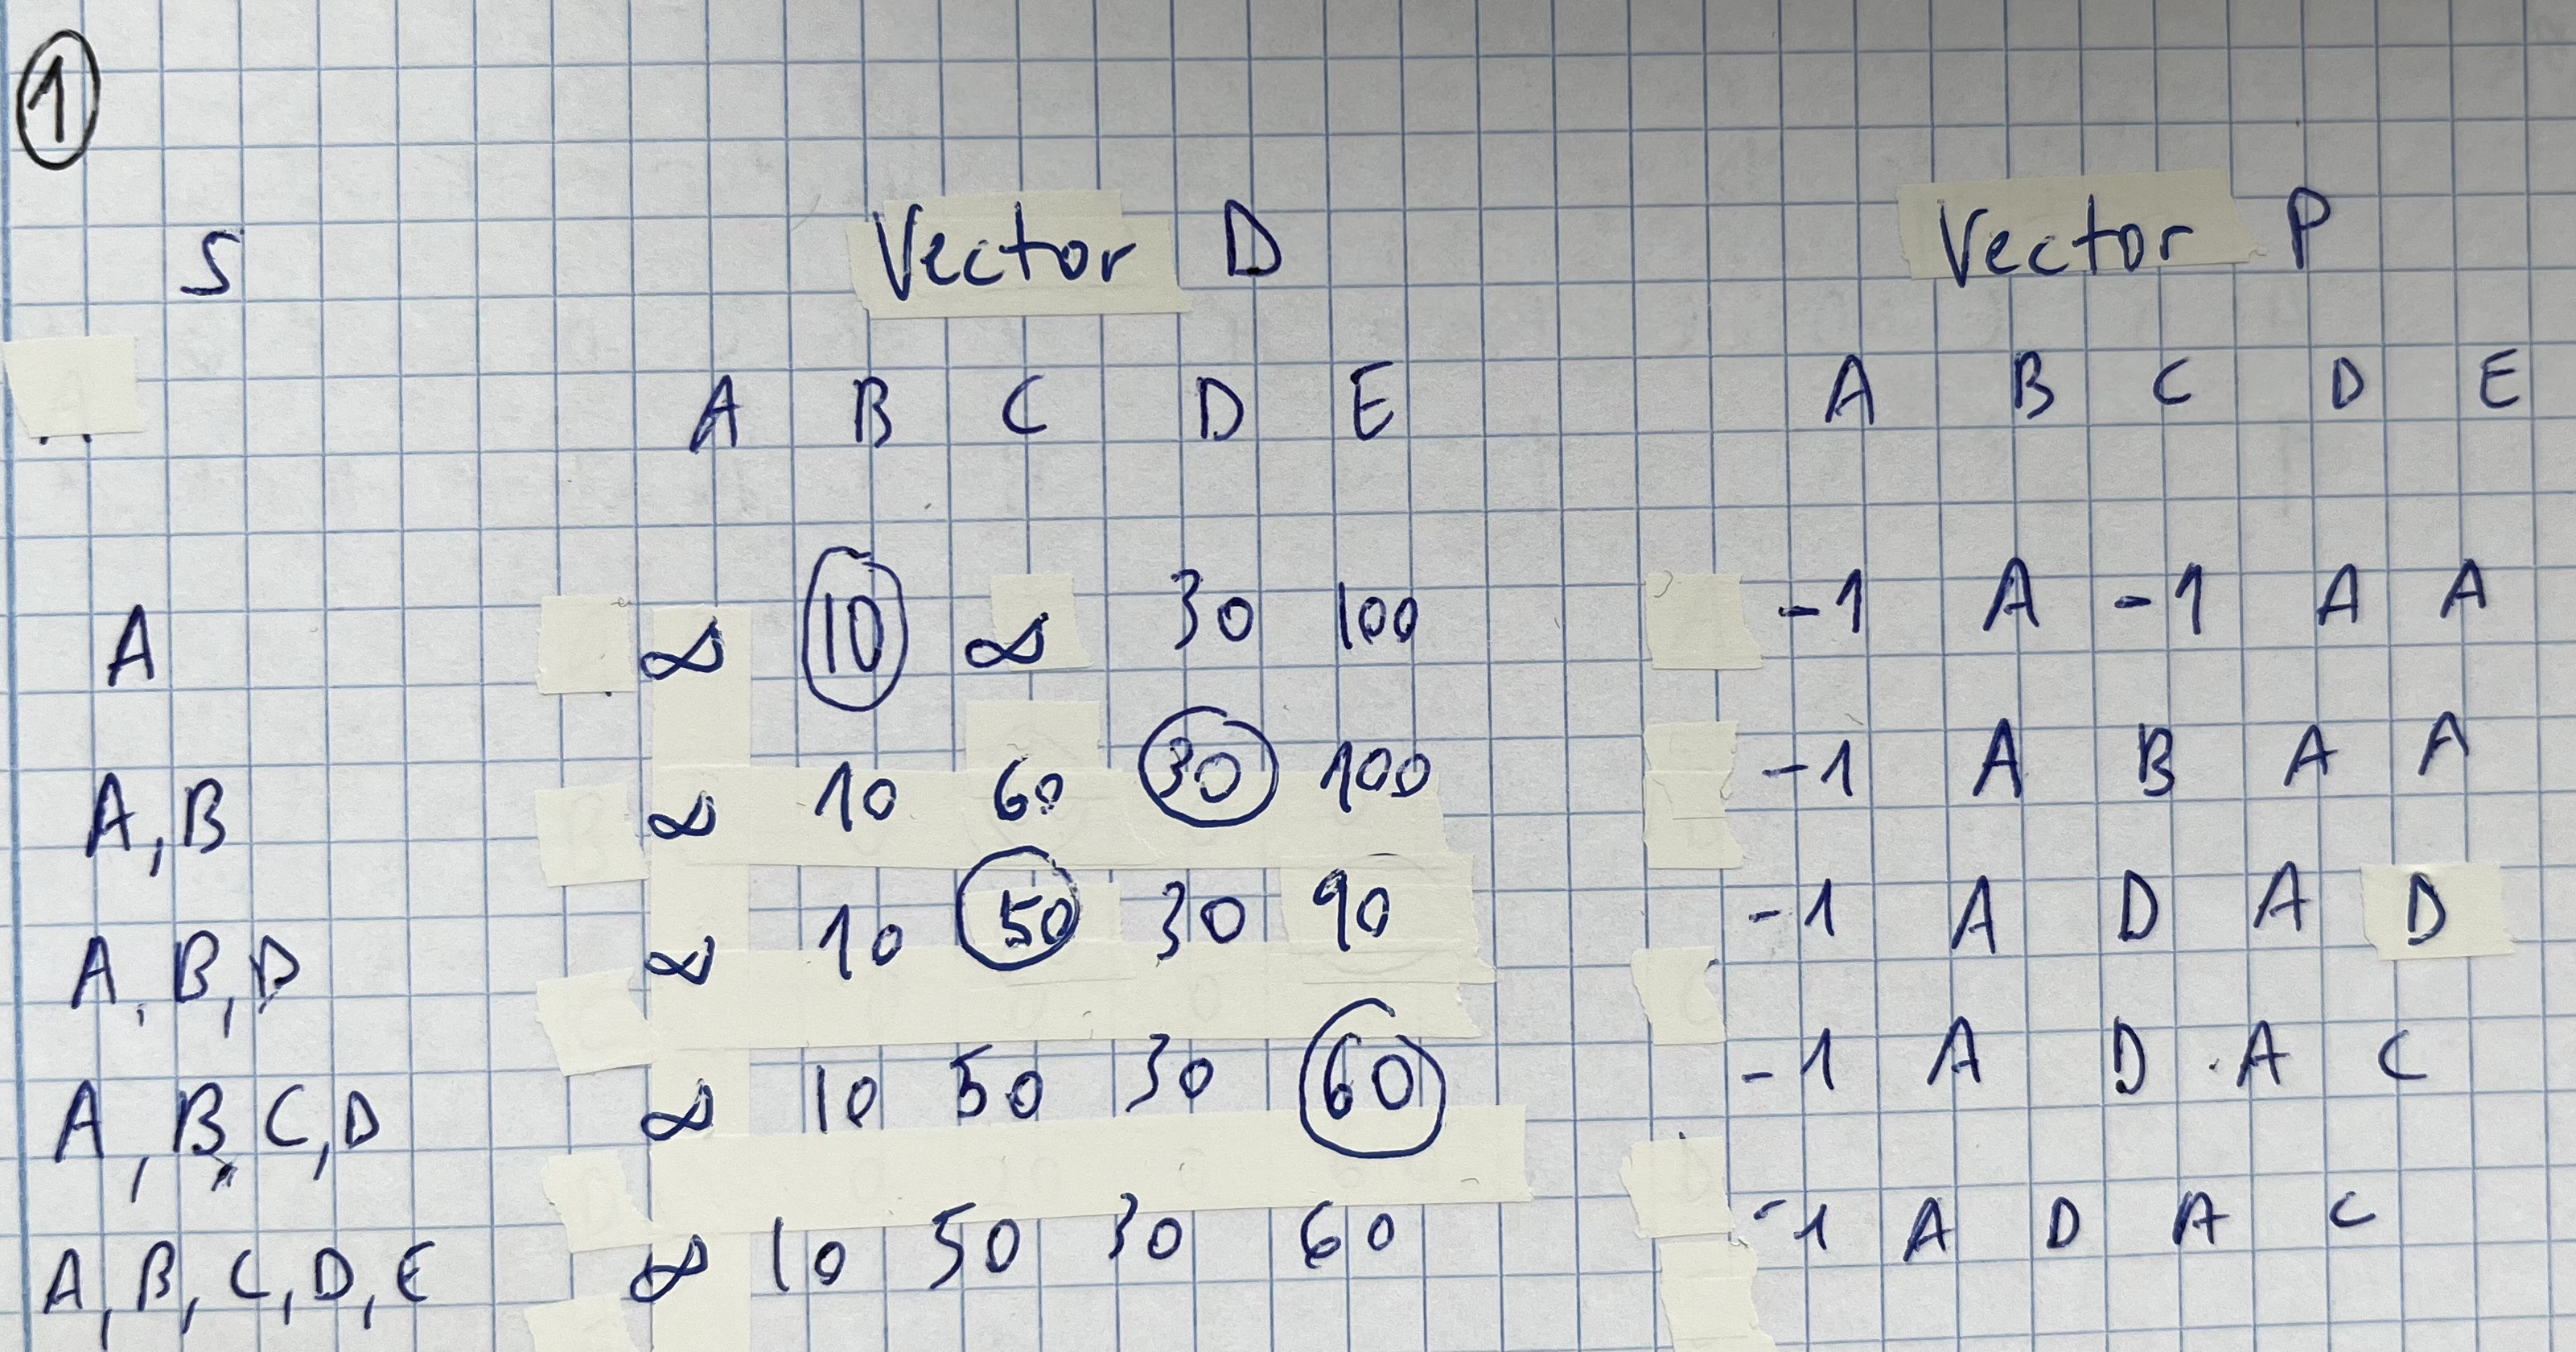 1
S Vector D Vector P
A B C D E A B C D E
A ∞ 10 ∞ 30 100 -1 A -1 A A
A, B ∞ 10 60 30 100 -1 A B A A
A, B, D ∞ 10 50 30 90 -1 A D A D
A, B, C, D ∞ 10 50 30 60 -1 A D A C
A, B, C, D, E ∞ 10 50 30 60 -1 A D A C